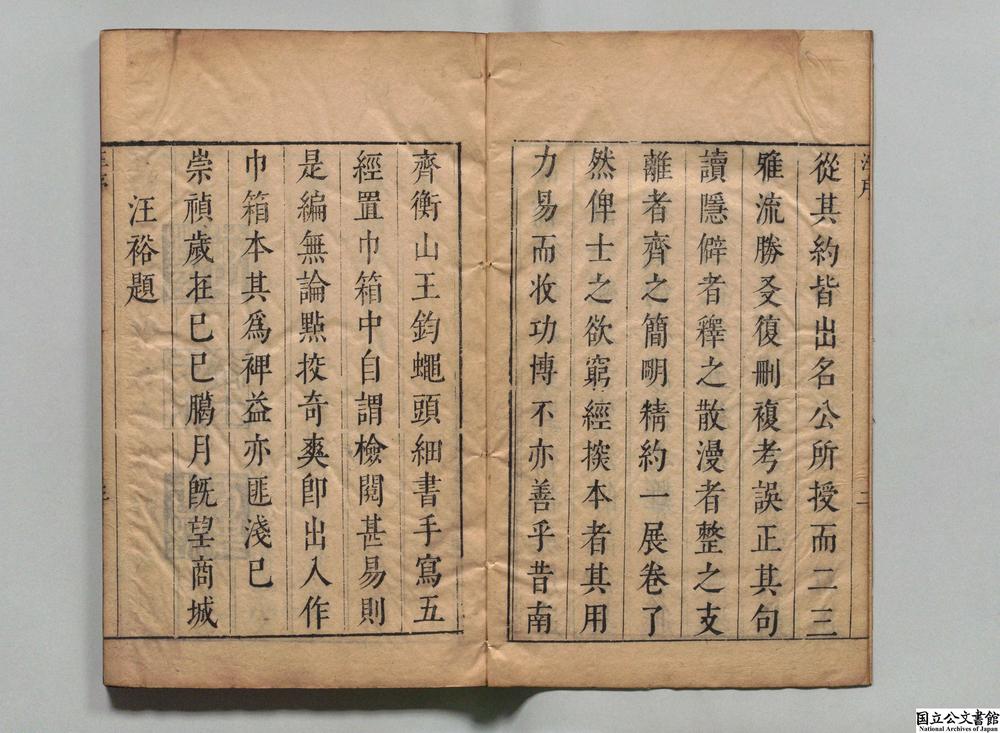 從其約皆出名公所授而二三
雅流勝爻復刪複考誤正其句
讀隱僻者釋之散漫者整之支
離者齊之簡明精約一展卷了
然俾士之欲窮經探本者其用
力易而收功博不亦善乎昔南
齊衡山王鈞蠅頭細書手寫五
經置巾箱中自謂檢閱甚易則
是編無論點挍奇爽卽出入作
巾箱本其爲裨益亦匪淺已
崇禎歲在己巳臈月旣望商城
汪裕題
国立公文書館
National Archives of Japan